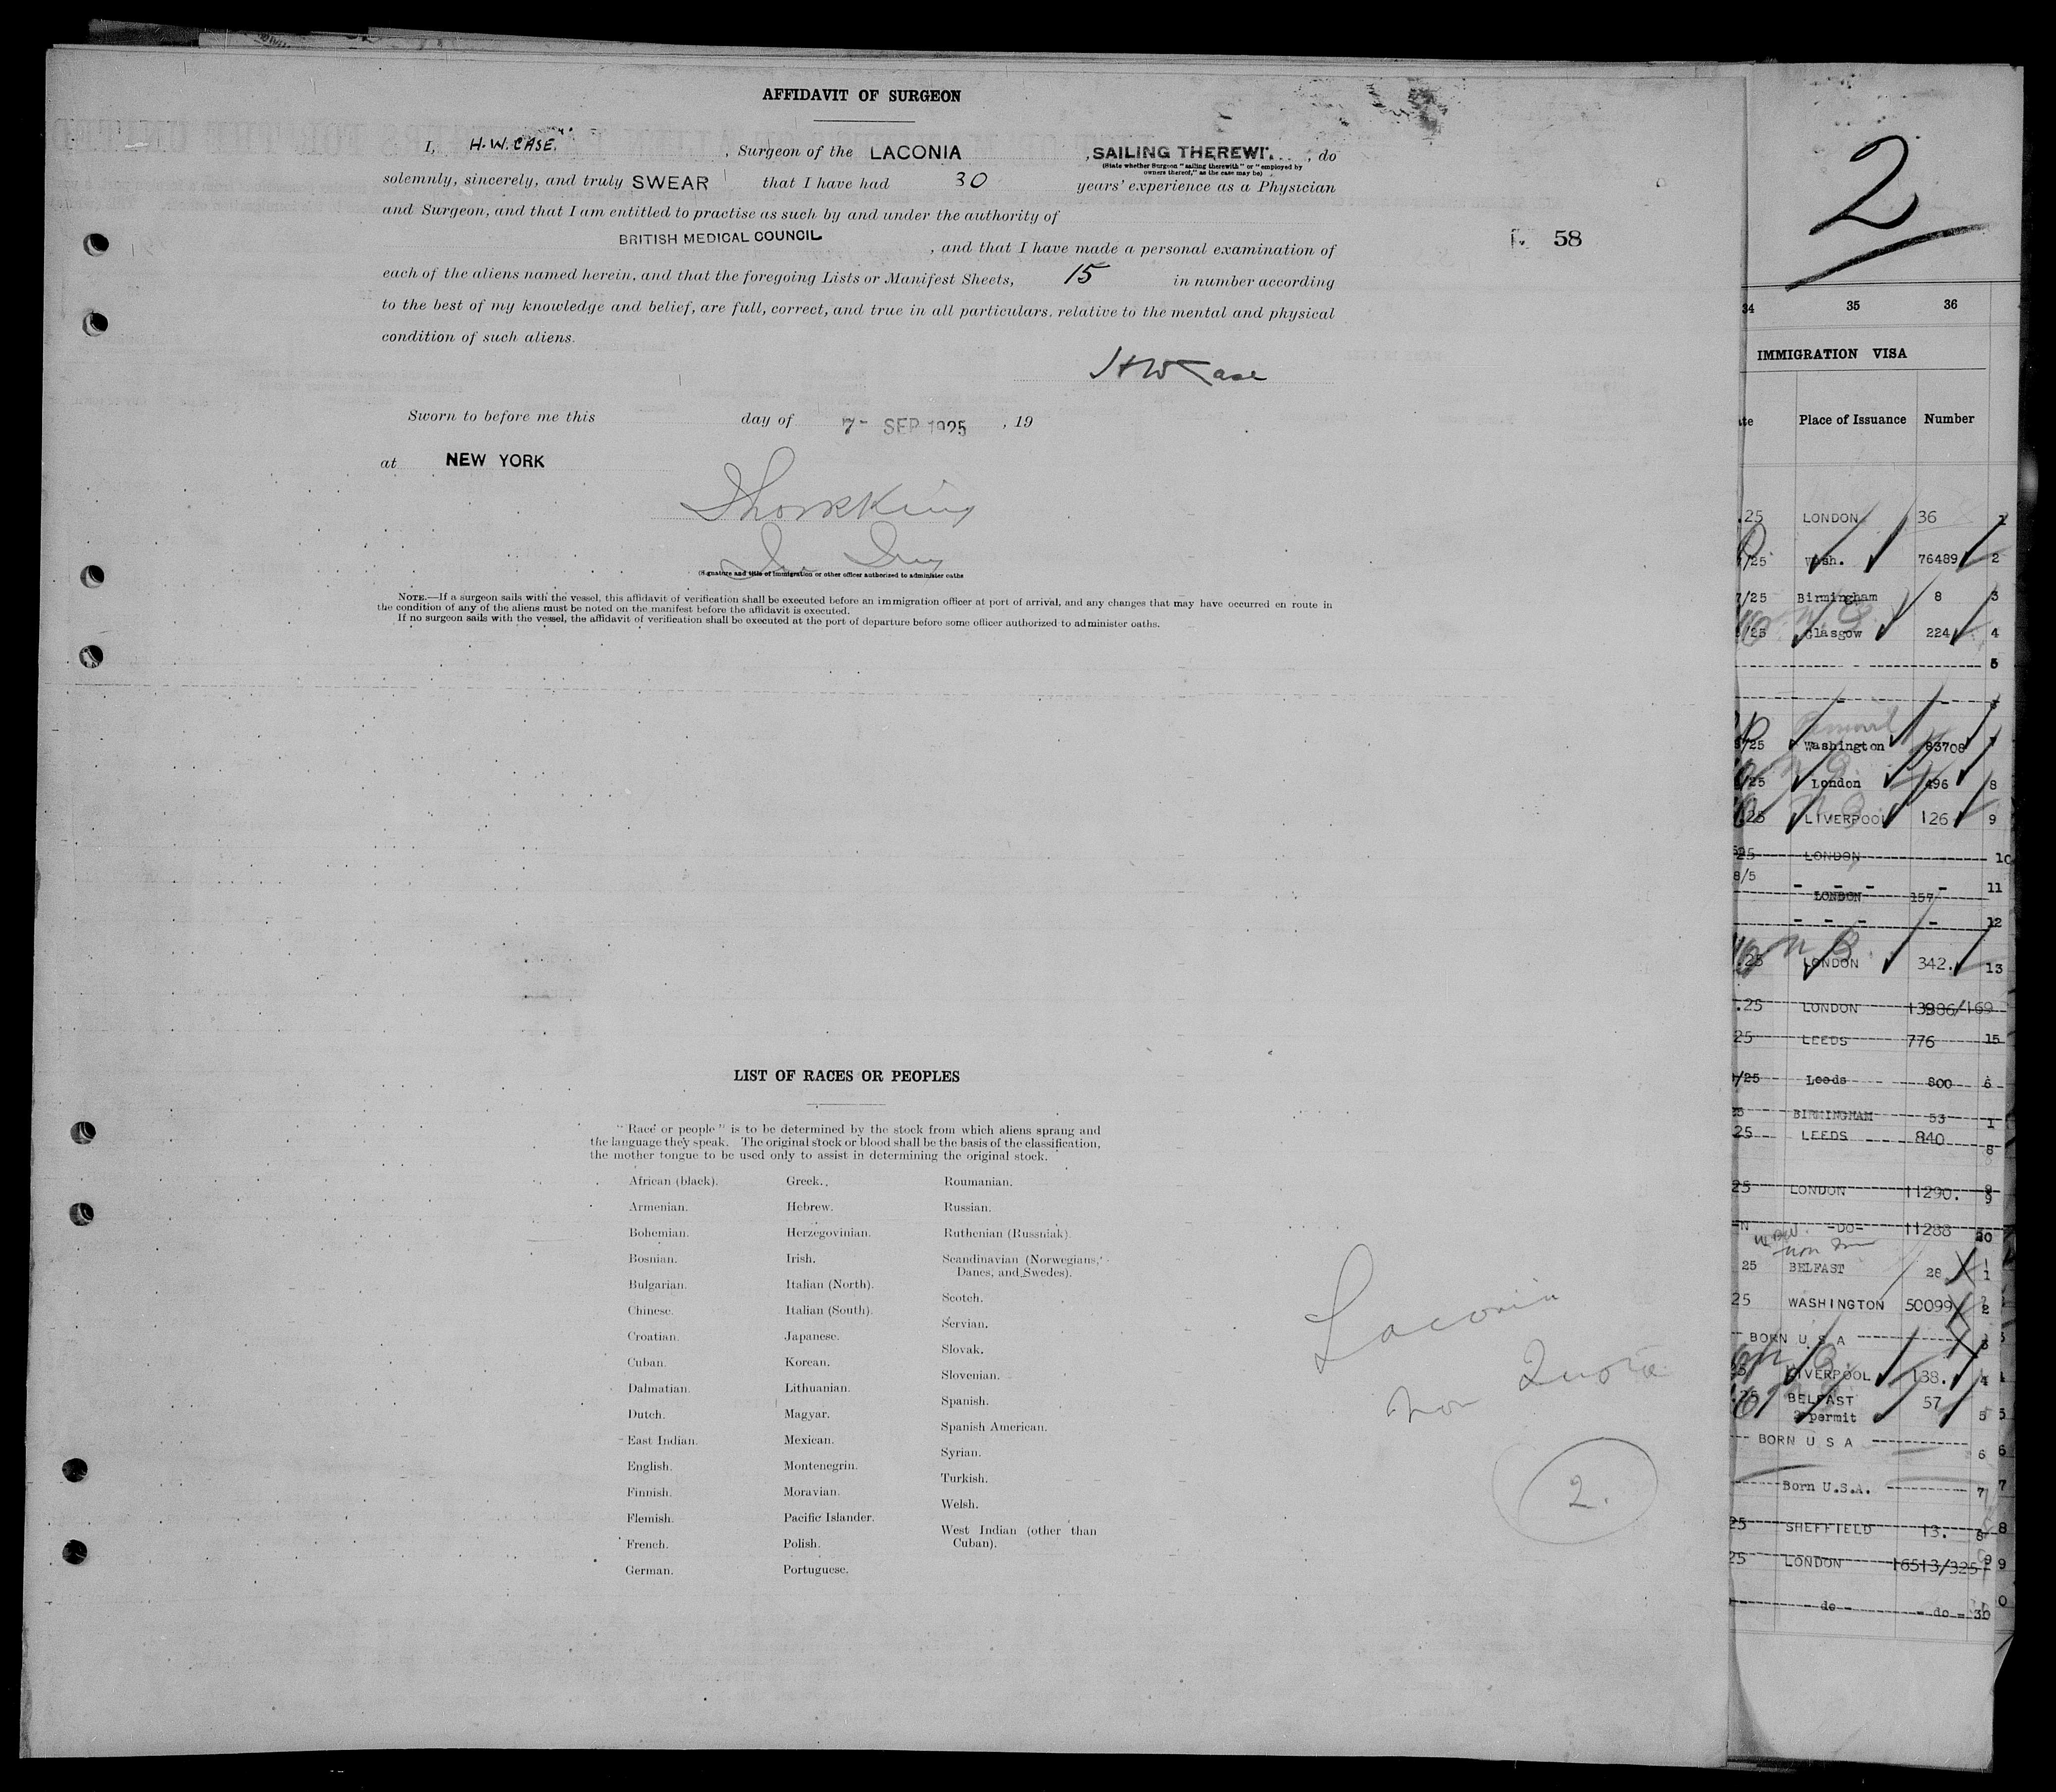 AFFIDAVIT OF SURGEON
I, H.W. CASE. , Surgeon of the LACONIA , SAILING THEREWI , do
(State whether Surgeon "sailing therewith" or "employed by
owners thereof," as the case may be)
solemnly, sincerely, and truly SWEAR that I have had 30 years' experience as a Physician
and Surgeon, and that I am entitled to practise as such by and under the authority of
BRITISH MEDICAL COUNCIL , and that I have made a personal examination of
58
each of the aliens named herein, and that the foregoing Lists or Manifest Sheets, 15 in number according
to the best of my knowledge and belief, are full, correct, and true in all particulars, relative to the mental and physical
condition of such aliens.
HW Case
Sworn to before me this day of 7- SEP 1925 , 19
at NEW YORK
(Signature and title of immigration or other officer authorized to administer oaths
NOTE.—If a surgeon sails with the vessel, this affidavit of verification shall be executed before an immigration officer at port of arrival, and any changes that may have occurred en route in
the condition of any of the aliens must be noted on the manifest before the affidavit is executed.
If no surgeon sails with the vessel, the affidavit of verification shall be executed at the port of departure before some officer authorized to administer oaths.
LIST OF RACES OR PEOPLES
"Race or people" is to be determined by the stock from which aliens sprang and
the language they speak. The original stock or blood shall be the basis of the classification,
the mother tongue to be used only to assist in determining the original stock.
African (black).
Armenian.
Bohemian.
Bosnian.
Bulgarian.
Chinese.
Croatian.
Cuban.
Dalmatian.
Dutch.
East Indian.
English.
Finnish.
Flemish.
French.
German.
Greek.
Hebrew.
Herzegovinian.
Irish.
Italian (North).
Italian (South).
Japanese.
Korean.
Lithuanian.
Magyar.
Mexican.
Montenegrin.
Moravian.
Pacific Islander.
Polish.
Portuguese.
Roumanian.
Russian.
Ruthenian (Russniak).
Scandinavian (Norwegians,
Danes, and Swedes).
Scotch.
Servian.
Slovak.
Slovenian.
Spanish.
Spanish American.
Syrian.
Turkish.
Welsh.
West Indian (other than
Cuban).
Laconia
Non Quota
2.
2
34 35 36
IMMIGRATION VISA
Place of Issuance Number
.25 LONDON 36
/25 Wash. 76489 2
7/25 Birmingham 8 3
/25 Glasgow 224 4
5
/25 Washington 83708 7
/25 London 496 8
.25 LIVERPOOL 126 9
25 LONDON 10
8/5 - - - - 11
LONDON 157
- - - - 12
N.B.
.25 LONDON 342. 13
.25 LONDON 13986/169
25 LEEDS 776 15
/25 Leeds 800 6
BIRMINGHAM 53 1
25 LEEDS 840 8
25 LONDON 11290. 9
-DO- 11288 20
25 BELFAST 28 1
25 WASHINGTON 50099 2
BORN U S A 3
LIVERPOOL 138. 4
.25 BELFAST 57 5
permit
BORN U S A 6
Born U.S.A. 7
25 SHEFFIELD 13. 8
25 LONDON 16513/325 9
- do - - do - 30